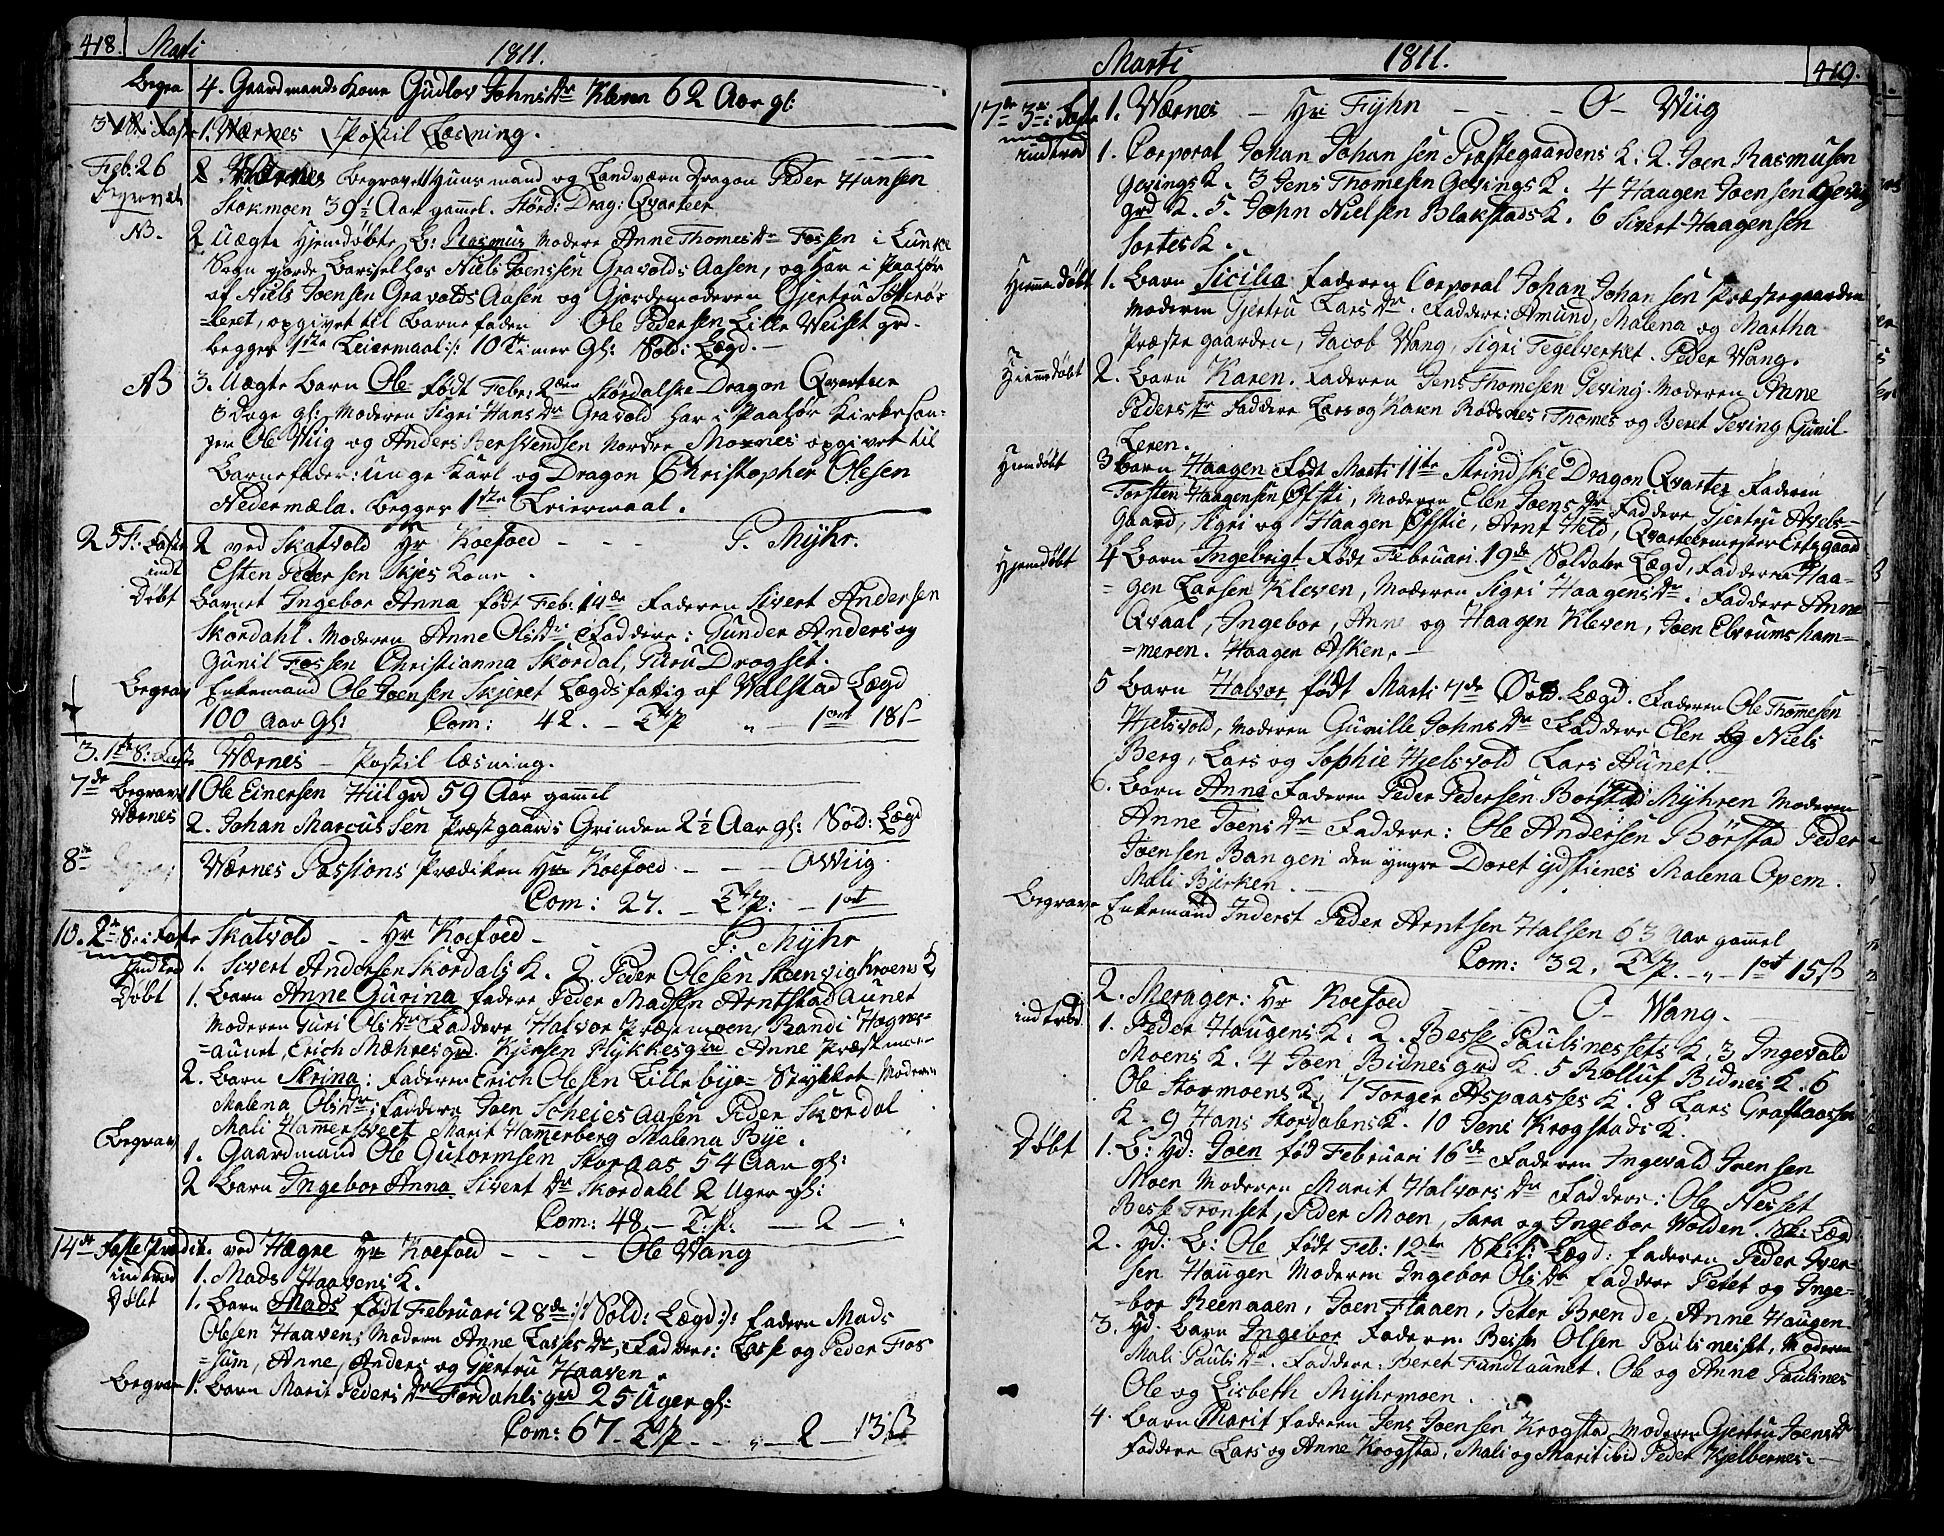 418. Marti 1811.
Begra 4. Gaardmands Kone Gudlov Johns Dr Kleven 62 Aar gl:
3 1 S: i Faste 1. Wærnes Postil Læsning.
Feb: 26 1 Wærnes Begravet Huusmand og Landværn Dragon Peder Hansen
Stokmoen 39 1/2 Aar gammel. Størd: Drag: Qvarteer
NB. 2 Uægte Hjemdøbte B: Rasmus Modere Anne Thomes Dr Fossen i Lunke
Sogn giorde Barssel hos Niels Joenssen Gravolds Aasen, og har i Paahør
af Niels Joensen Gravolds Aasen og Gjordemoderen Gjertru
leret, opgivet til Barnefaden Ole Pedersen Lille Weiset grd.
begges 1ste Leiermaal :/: 10 Timer Gl: Sold: Lægd.
NB 3. Uægte Barn Ole født Febr: 2den Stördalske Dragon Qvarteer
3 Dage gl: Moderen Sigri Hans Dr Gravold har i Paahør Kirkesan-
ger Ole Wiig og Anders Bersvendsen Nordre Moxnes opgivet til
Barnefader: unge Karl og Dragon Christopher Olesen
Nedermæla. Begges 1ste Leiermaal.
2 S F: Faste 2 ved Skatvold Hr Koefoed - - - P. Mÿhr.
indt Esten Pedersen Skjes Kone.
Døbt Barnet Ingebor Anna født Feb: 14de Faderen Sivert Andersen
Skordahl. Moderen Anne Ols Dr Faddere: Gunder Anders og
Gunil Fossen Christianna Skordal, Guru Drogset.
Begrav Enkemand Ole Joensen Skjeret Lægdsfattig af Walstad Lægd
100 Aar Gl: Com: 42. - T/P " - 1 ort 18 ß
3. 1te S: i Faste Wærnes - Postil læsning.
7de Begrav 1 Ole Einersen Hiil grd 59 Aar gammel
Wærnes 2. Johan Marcussen Præstgaards Grinden 2 1/2 Aar gl: Sold: Lægd
8de Wærnes Passions Prædiken Hr Koefoed. - - - O Wiig.
Com: 27. - T/P: - 1 ort
10. 2n S: i Faste Skatvold - - Hr Koefoed - - - P. Mÿhr
Indled 1. Sivert Andersen Skordals K. 2. Peder Olesen Steenvigkroens K
Døbt 1. Barn Anne Gurina Fadere Peder Madsen Arntstad Aunet
Moderen Guri Ols Dr Faddere Halvor Præstmoen, Randi Hognes=
=aunet, Erich Mæhresgrd. Kjersten Hykkesgrd Anne Præstmoe-
2. Barn Strina: Faderen Erich Olesen Lille bye= Stykket Moderen
Malena Ols Dr: Faddere Joen Scheies Aasen Peder Skordal
Mali Hammersveet Marit Hammerberg Malena Bye.
Begrav 1. Gaardmand Ole Gutormsen Storaas 54 Aar gl:
2 Barn Ingebor Anna Sivert Dr Skordahl 2 Uger gl:
Com: 48. - T:P: - 2 - "
14de Faste Prædik: ved Hægre Hr Koefoed - - - Ole Wang
indtrod 1. Mads Haavens K.
Døbt 1. Barn Mads født Februari 28de :/: Sold: Lægd :/: Fadern Mads
Olesen Haaven, Modern Anne Lasses Dr, Faddere: Lasse og Peder Fos
=sum, Anne, Anders og Gjertru Haaven.
Begrav 1. Barn Marit Peders Dr Fordahlsgrd 25 Uger gl:
Com: 67 - T/P - - " - 2 - 13 ß
Marti 1811. 419.
17de 3n i Faste 1. Wærnes - Hr Fÿhn - - - O- Wiig
indtrod 1. Corporal Johan Johansen Præstegaardens K: 2. Joen Rasmusen
Gevings K. 3 Jens Thomesen Gevings K. 4 Haagen Joensen Geving
grd K. 5. John Nielsen Blakstads K. 6 Sivert Haagensen
Sortes K.
Hjemmedøbt 1. Barn Sicilia. Faderen Corporal Johan Johansen Præstegaarden
Moderen Gjertru Lars Dr. Faddere: Amund, Malena og Martha
Præstegaarden, Jacob Wang, Sigri Tegelverket. Peder Wang.
Hjemmedøbt 2. Barn Karen. Faderen Jens Thomesen Geving. Moderen Anne
Peders Dr Faddere Lars og Karen Rodsnes Thomes og Beret Geving Gunil
Leren.
Hjemdøbt 3 Barn Haagen født Marti 11te Strindske Dragon Qvarter Faderen
Torsten Haagensen Øfsti, Moderen Elen Joens Dr. Faddere Gjertru Avels-
gaard, Sigri og Haagen Øfstie, Arnt Held, Qvarteermester Ertzgaard
Hjemdøbt 4 Barn Ingebrigt født Februari 19de Soldater Lægd, Fadderen Haa-
=gen Larsen Kleven, Moderen Sigri Haagens Dr. Faddere Anne
Qvaal, Ingebor, Anne og Haagen Kleven, Joen Elvrumsham-
=meren. Haagen Asken. -
5 Barn Halvor født Marti 4de Sold. Lægd. Faderen Ole Thomesen
Hjelsvold, Moderen Gunille Johns Dr Faddere Elen og Niels
Berg, Lars og Sophie Hjelsvold Lars Aunet.
6. Barn Anne Faderen Peder Pedersen Borstad Mÿhren Moderen
Anne Joens Dr Faddere: Ole Andersen Børstad Peder
Joensen Bangen den yngre Doret ydstienes Malena Opem.
Mali Bjerken.
Begrave Enkemand Inderst Peder Arntsen Halsen 63 Aar gammel
Com: 32. T/P. - " - 1 ort 15 ß
2. Merager: Hr Koefoed - - - O- Wang.
indtrod 1. Peder Haugens K. 2. Besse Paulinessets K. 3 Ingevald
Moens K. 4 Joen Bidnes grd K. 5 Rolluf Bidnes K. 6
Ole Stormoens K, 7 Torger Aspaasses K. 8 Lars Graftaassen
K. 9 Hans Stordalens K. 10 Jens Krogstads K.
Døbt 1. B: Hd: Joen fød Februari 16de Faderen Ingevald Joensen
Moen Moderen Marit Halvors Dr Faddere: Ole Nesset
Besse Tronset, Peder Moen, Sara og Ingebor Volden. Sk: Lægd
2. Hd: B: Ole født Feb: 12te Skil: Lægd: Faderen Peder Iver-
sen Haugen Moderen Ingebor Ols Dr Faddere Petet og Inge-
=bor Reenaaen, Joen Flaaen, Peter Brende, Anne Haugen.
3. Hd: Barn Ingebor Faderen Besse Olsen Paulineset, Moderen
Mali Pauls Dr. Faddere: Beret Fundtaunet. Ole og Anne Paulines
Ole og Lisbeth Mÿhrmoen.
4. Barn Marit Faderen Jens Joensen Krogstad, Moderen Gjertru Joens Dr
Faddere Lars og Anne Krogstad, Mali og Marit ibid Peder Kjelbernes.